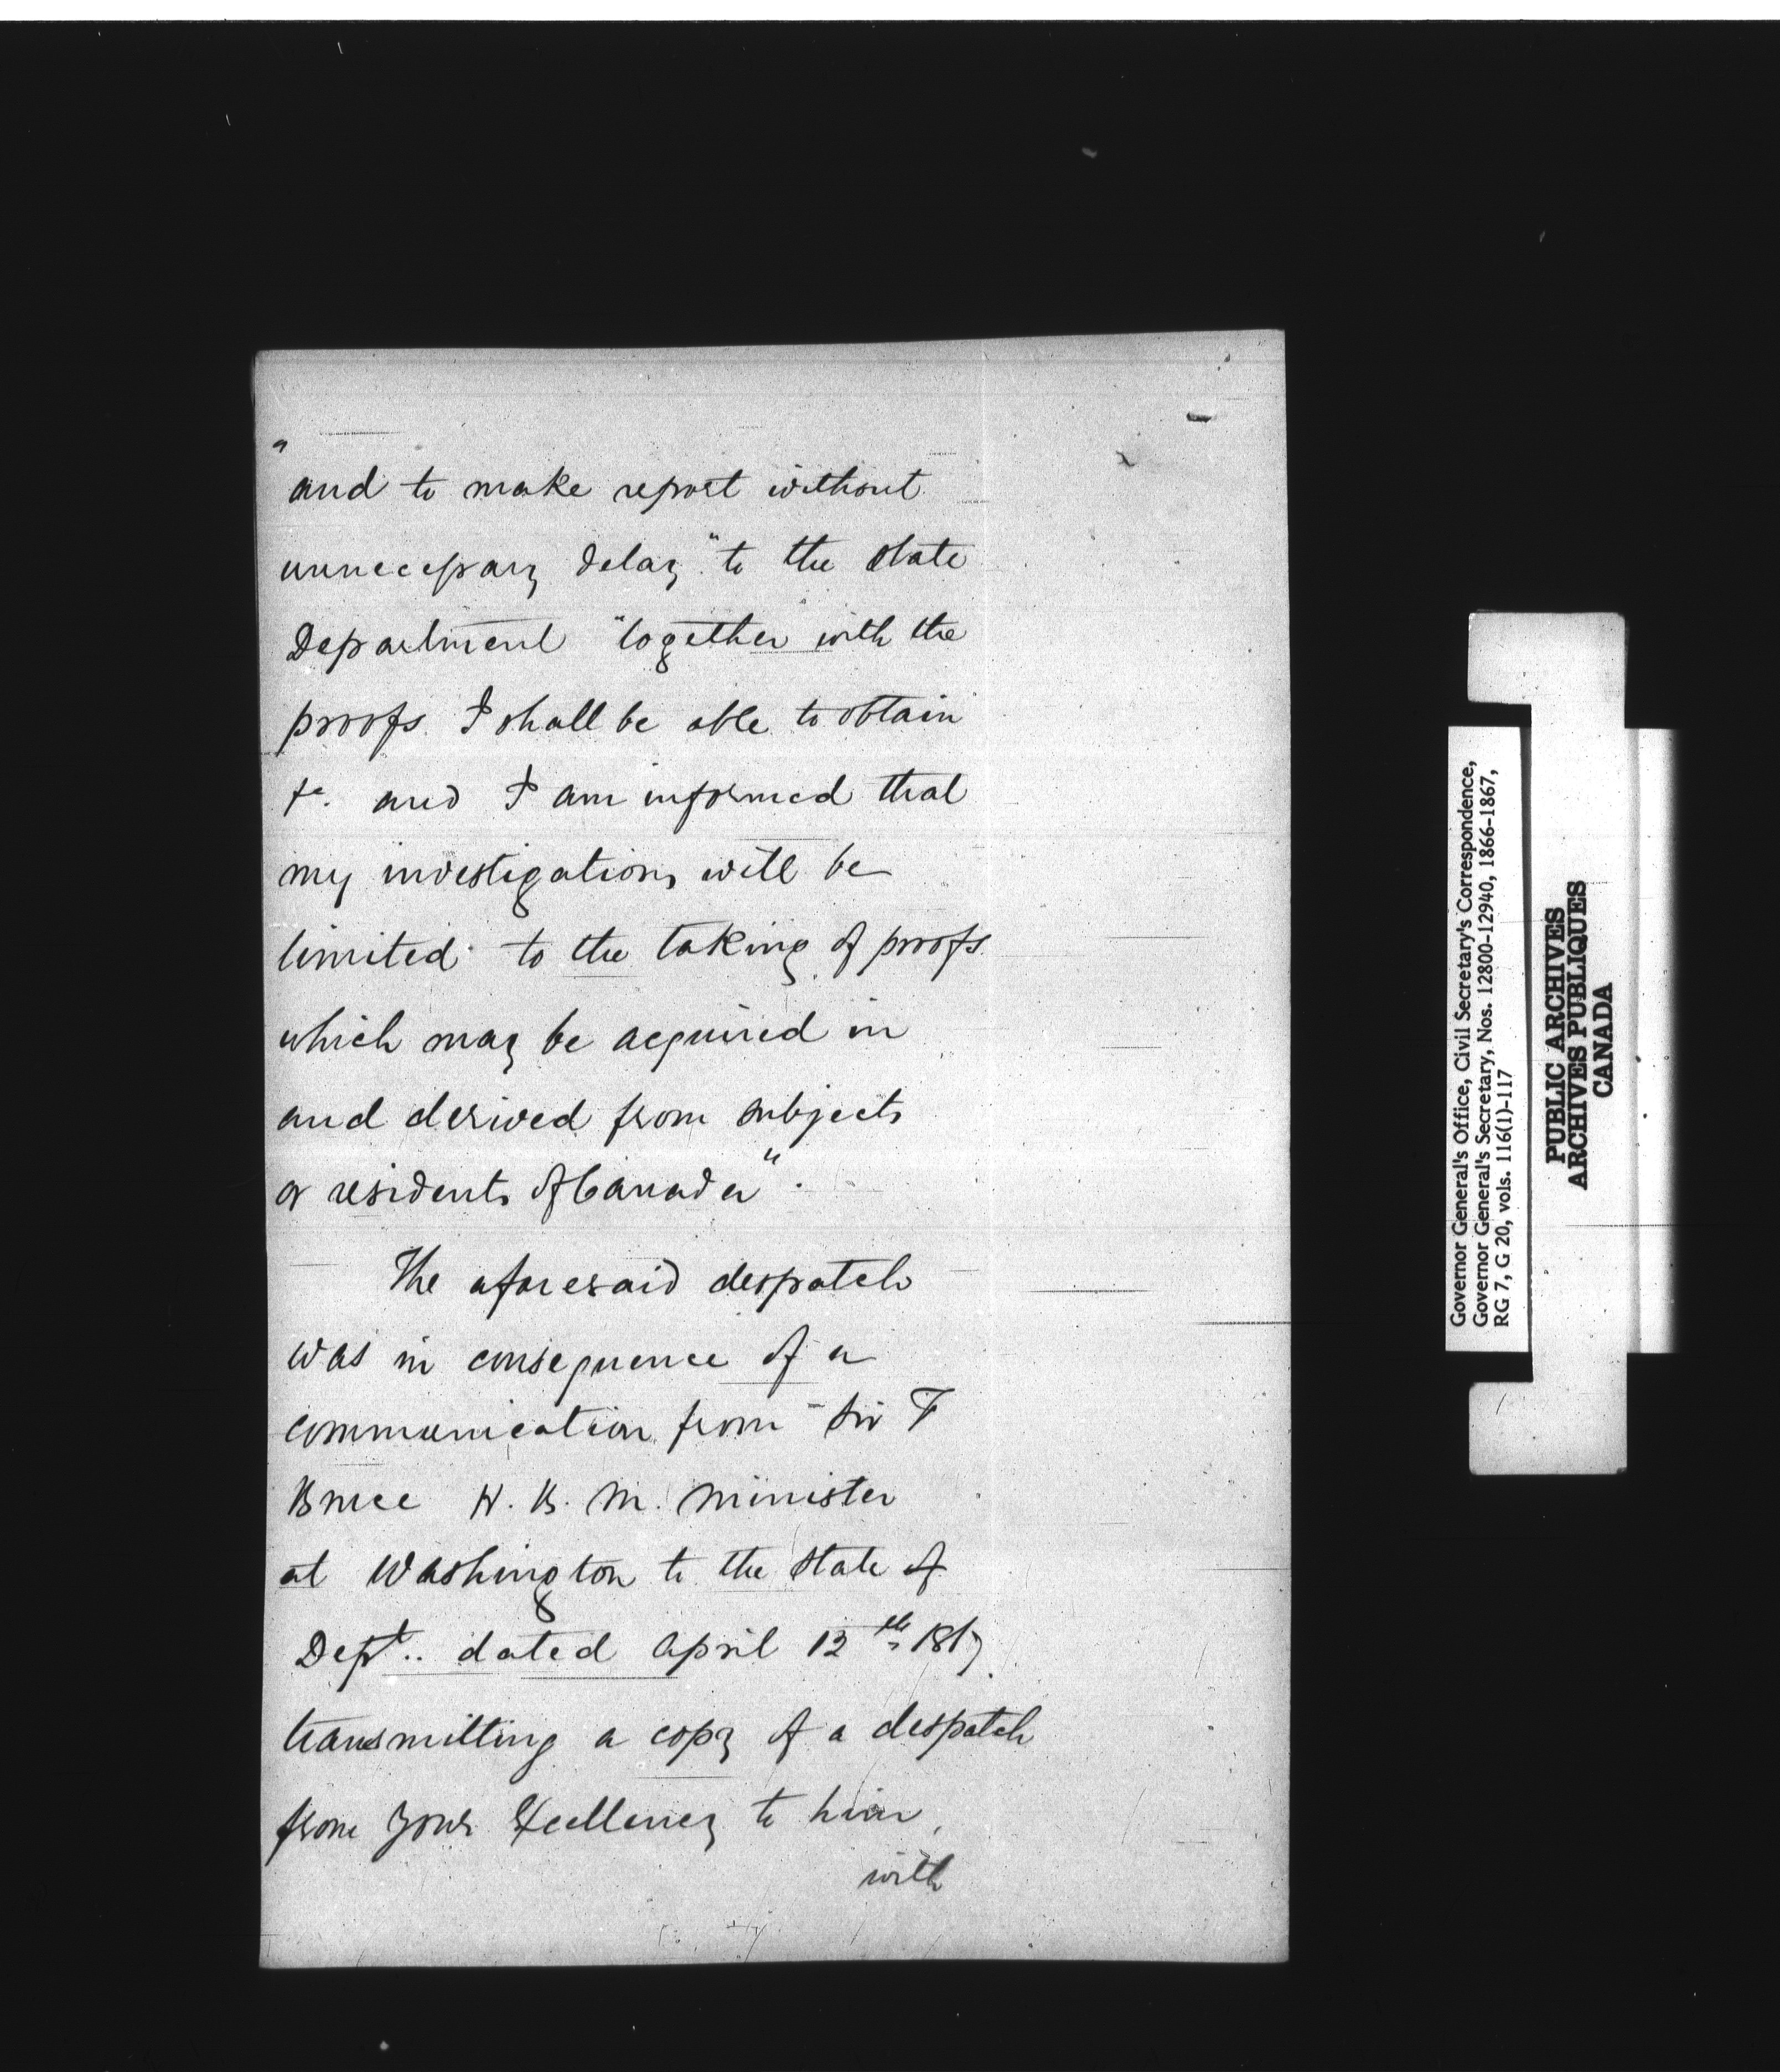 "and to make report without
unnecessary delay" to the State
Department "together with the
proofs I shall be able to obtain
&c. and I am informed that
my investigations will be
limited to the taking of proofs
which may be acquired in
and derived from subjects
or residents of Canada".
The aforesaid despatch
was in consequence of a
communication from Sir F
Bruce H. B. M. Minister
at Washington to the State of
Dept.. dated April 12th 1867
transmitting a copy of a despatch
from Your Excellency to him,
with
Governor General's Office, Civil Secretary's Correspondence,
Governor General's Secretary, Nos. 12800-12940, 1866-1867,
RG 7, G 20, vols. 116(1)-117
PUBLIC ARCHIVES
ARCHIVES PUBLIQUES
CANADA